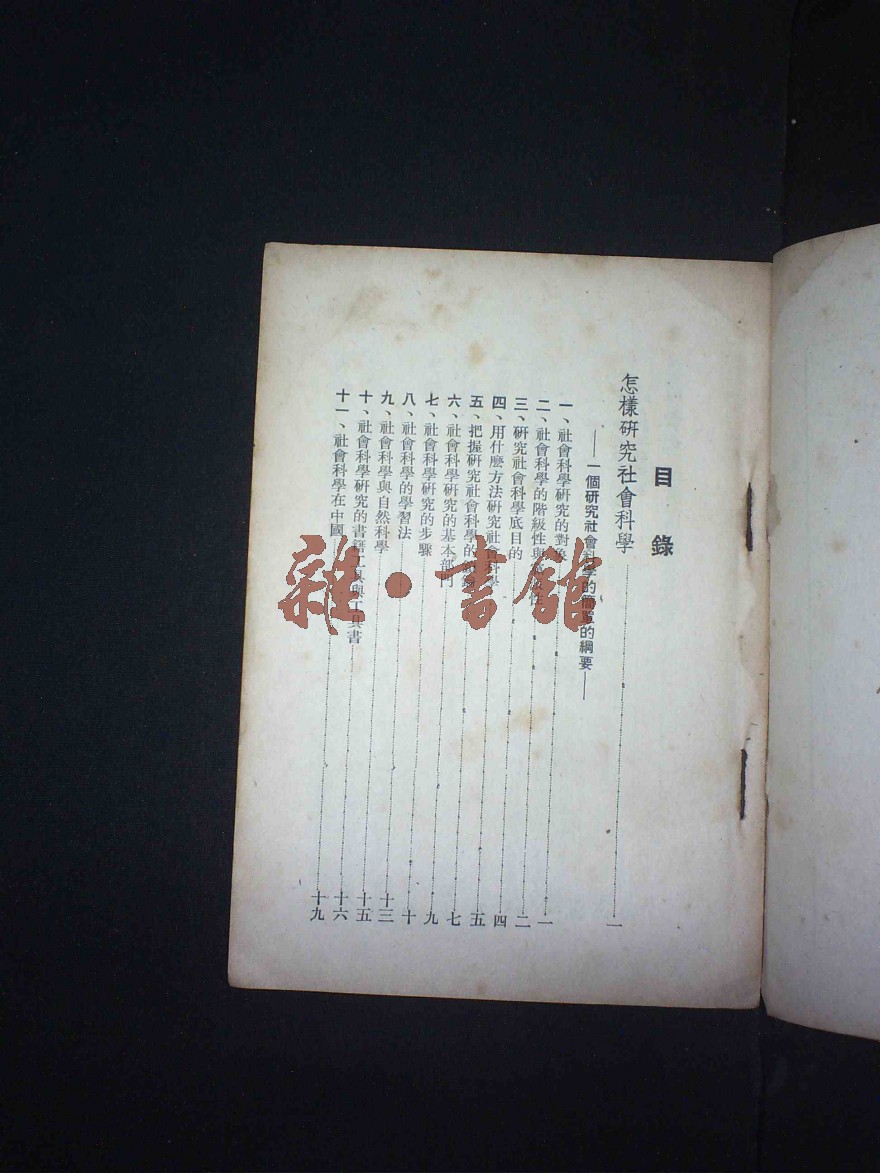 目錄
怎樣研究社會科學 一
——一個研究社會科學的簡單的綱要——
一、社會科學研究的對象 一
二、社會科學的階級性與 性 二
三、研究社會科學底目的 四
四、用什麼方法研究社會科學 五
五、把握研究社會科學的 七
六、社會科學研究的基本部門 九
七、社會科學研究的步驟 十
八、社會科學的學習法 十三
九、社會科學與自然科學 十五
十、社會科學研究的書籍工具與工具書 十六
十一、社會科學在中國 十九
雜·書館